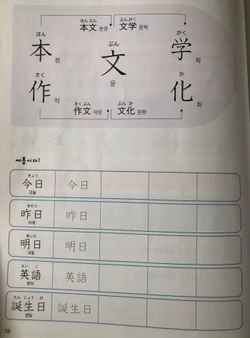 ほんぶん ぶんがく
本文 본문 文学 문학
ほん ぶん がく
本 본 文 문 学 학
さく か
作 작 化 화
さくぶん ぶんか
作文 작문 文化 문화
써봅시다!
きょう
今日 今日
오늘
きのう
昨日 昨日
어제
あした
明日 明日
내일
えいご
英語 英語
영어
たんじょうび
誕生日 誕生日
생일
78